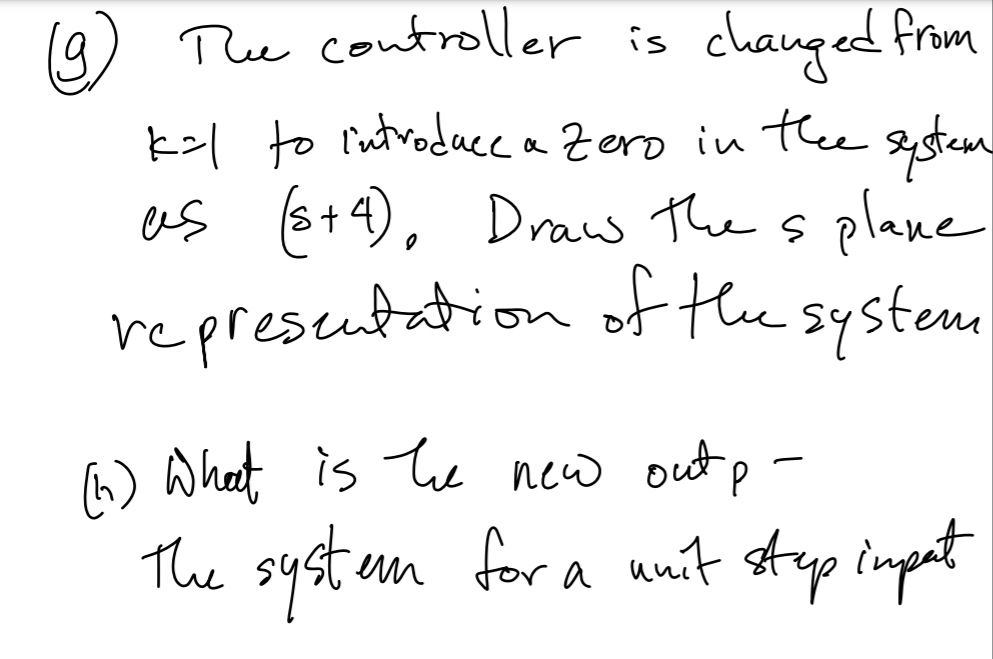 (g) The controller is changed from
k=1 to introduce a zero in the system
as (s+4). Draw the s plane
representation of the system
(h) What is the new outp-
the system for a unit step input